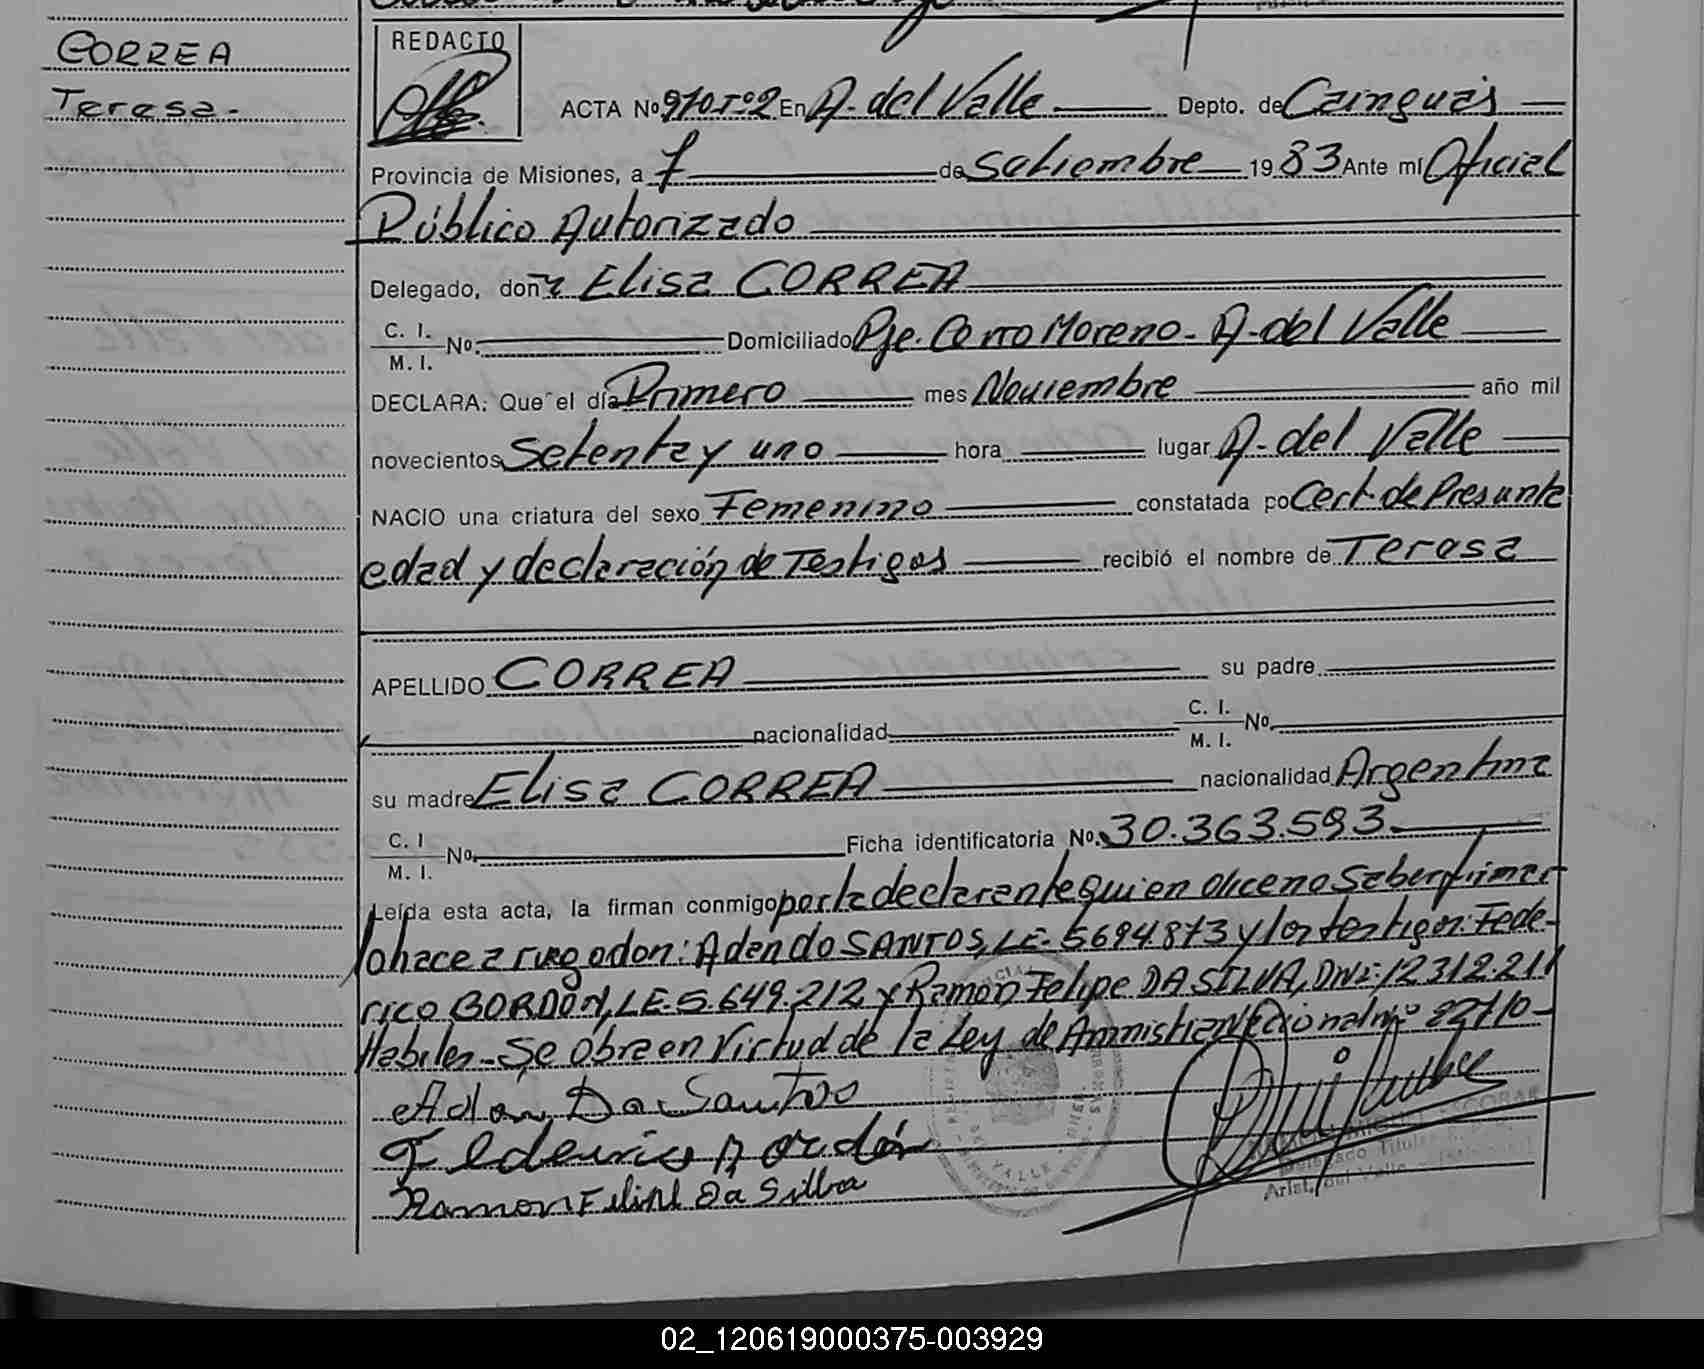 CORREA
Teresa-
REDACTO
ACTA No 970 Tº2 En A. del Valle Depto. de Cainguás
Provincia de Misiones, a 7 de Setiembre 1983 Ante mí Oficial
Público Autorizado
Delegado, doña Elisa CORREA
C. I.
M. I. No. Domiciliado Pje. Cerro Moreno - A. del Valle
DECLARA: Que el día Primero mes Noviembre año mil
novecientos Setenta y uno hora lugar A. del Valle
NACIO una criatura del sexo Femenino constatada po Cert. de Presunta
edad y declaración de Testigos recibió el nombre de Teresa
APELLIDO CORREA su padre
nacionalidad C. I. M. I. No.
su madre Elisa CORREA nacionalidad Argentina
C. I M. I. No. Ficha identificatoria No. 30.363.593.
Leída esta acta, la firman conmigo por la declarante quien dice no saber firmar
lo hace a ruego don: Aden do SANTOS, LE. 5694873 y los testigos: Fede-
rico BORDÓN, LE. 5.649.212 y Ramón Felipe DA SILVA, DNI: 12.312.211
Habiles - Se obra en Virtud de la Ley de Amnistia Nacional nº 22710-
Adan Da Santos
Federico Bordón
Ramon Da Silva
VALLE
ESCOBAR
Delegado Titular
Arist. del Valle
02_120619000375-003929